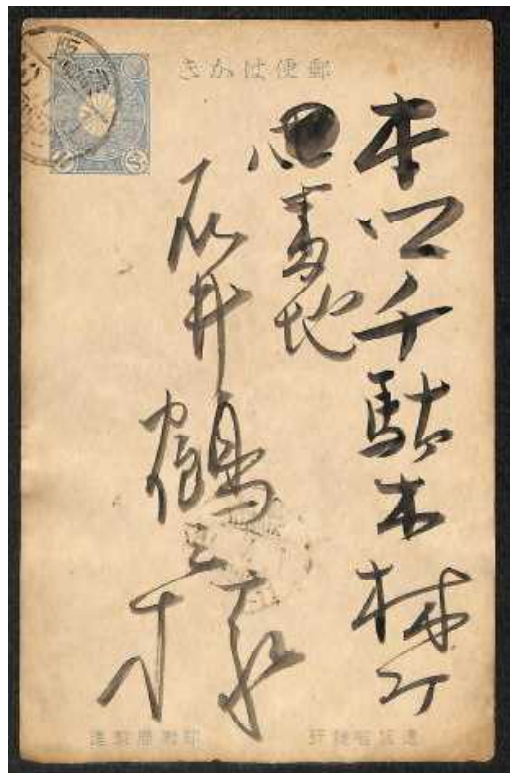 郵便はかき
本千駄木林丁
番地
石井鶴三様
遞信省發行
印刷局製造